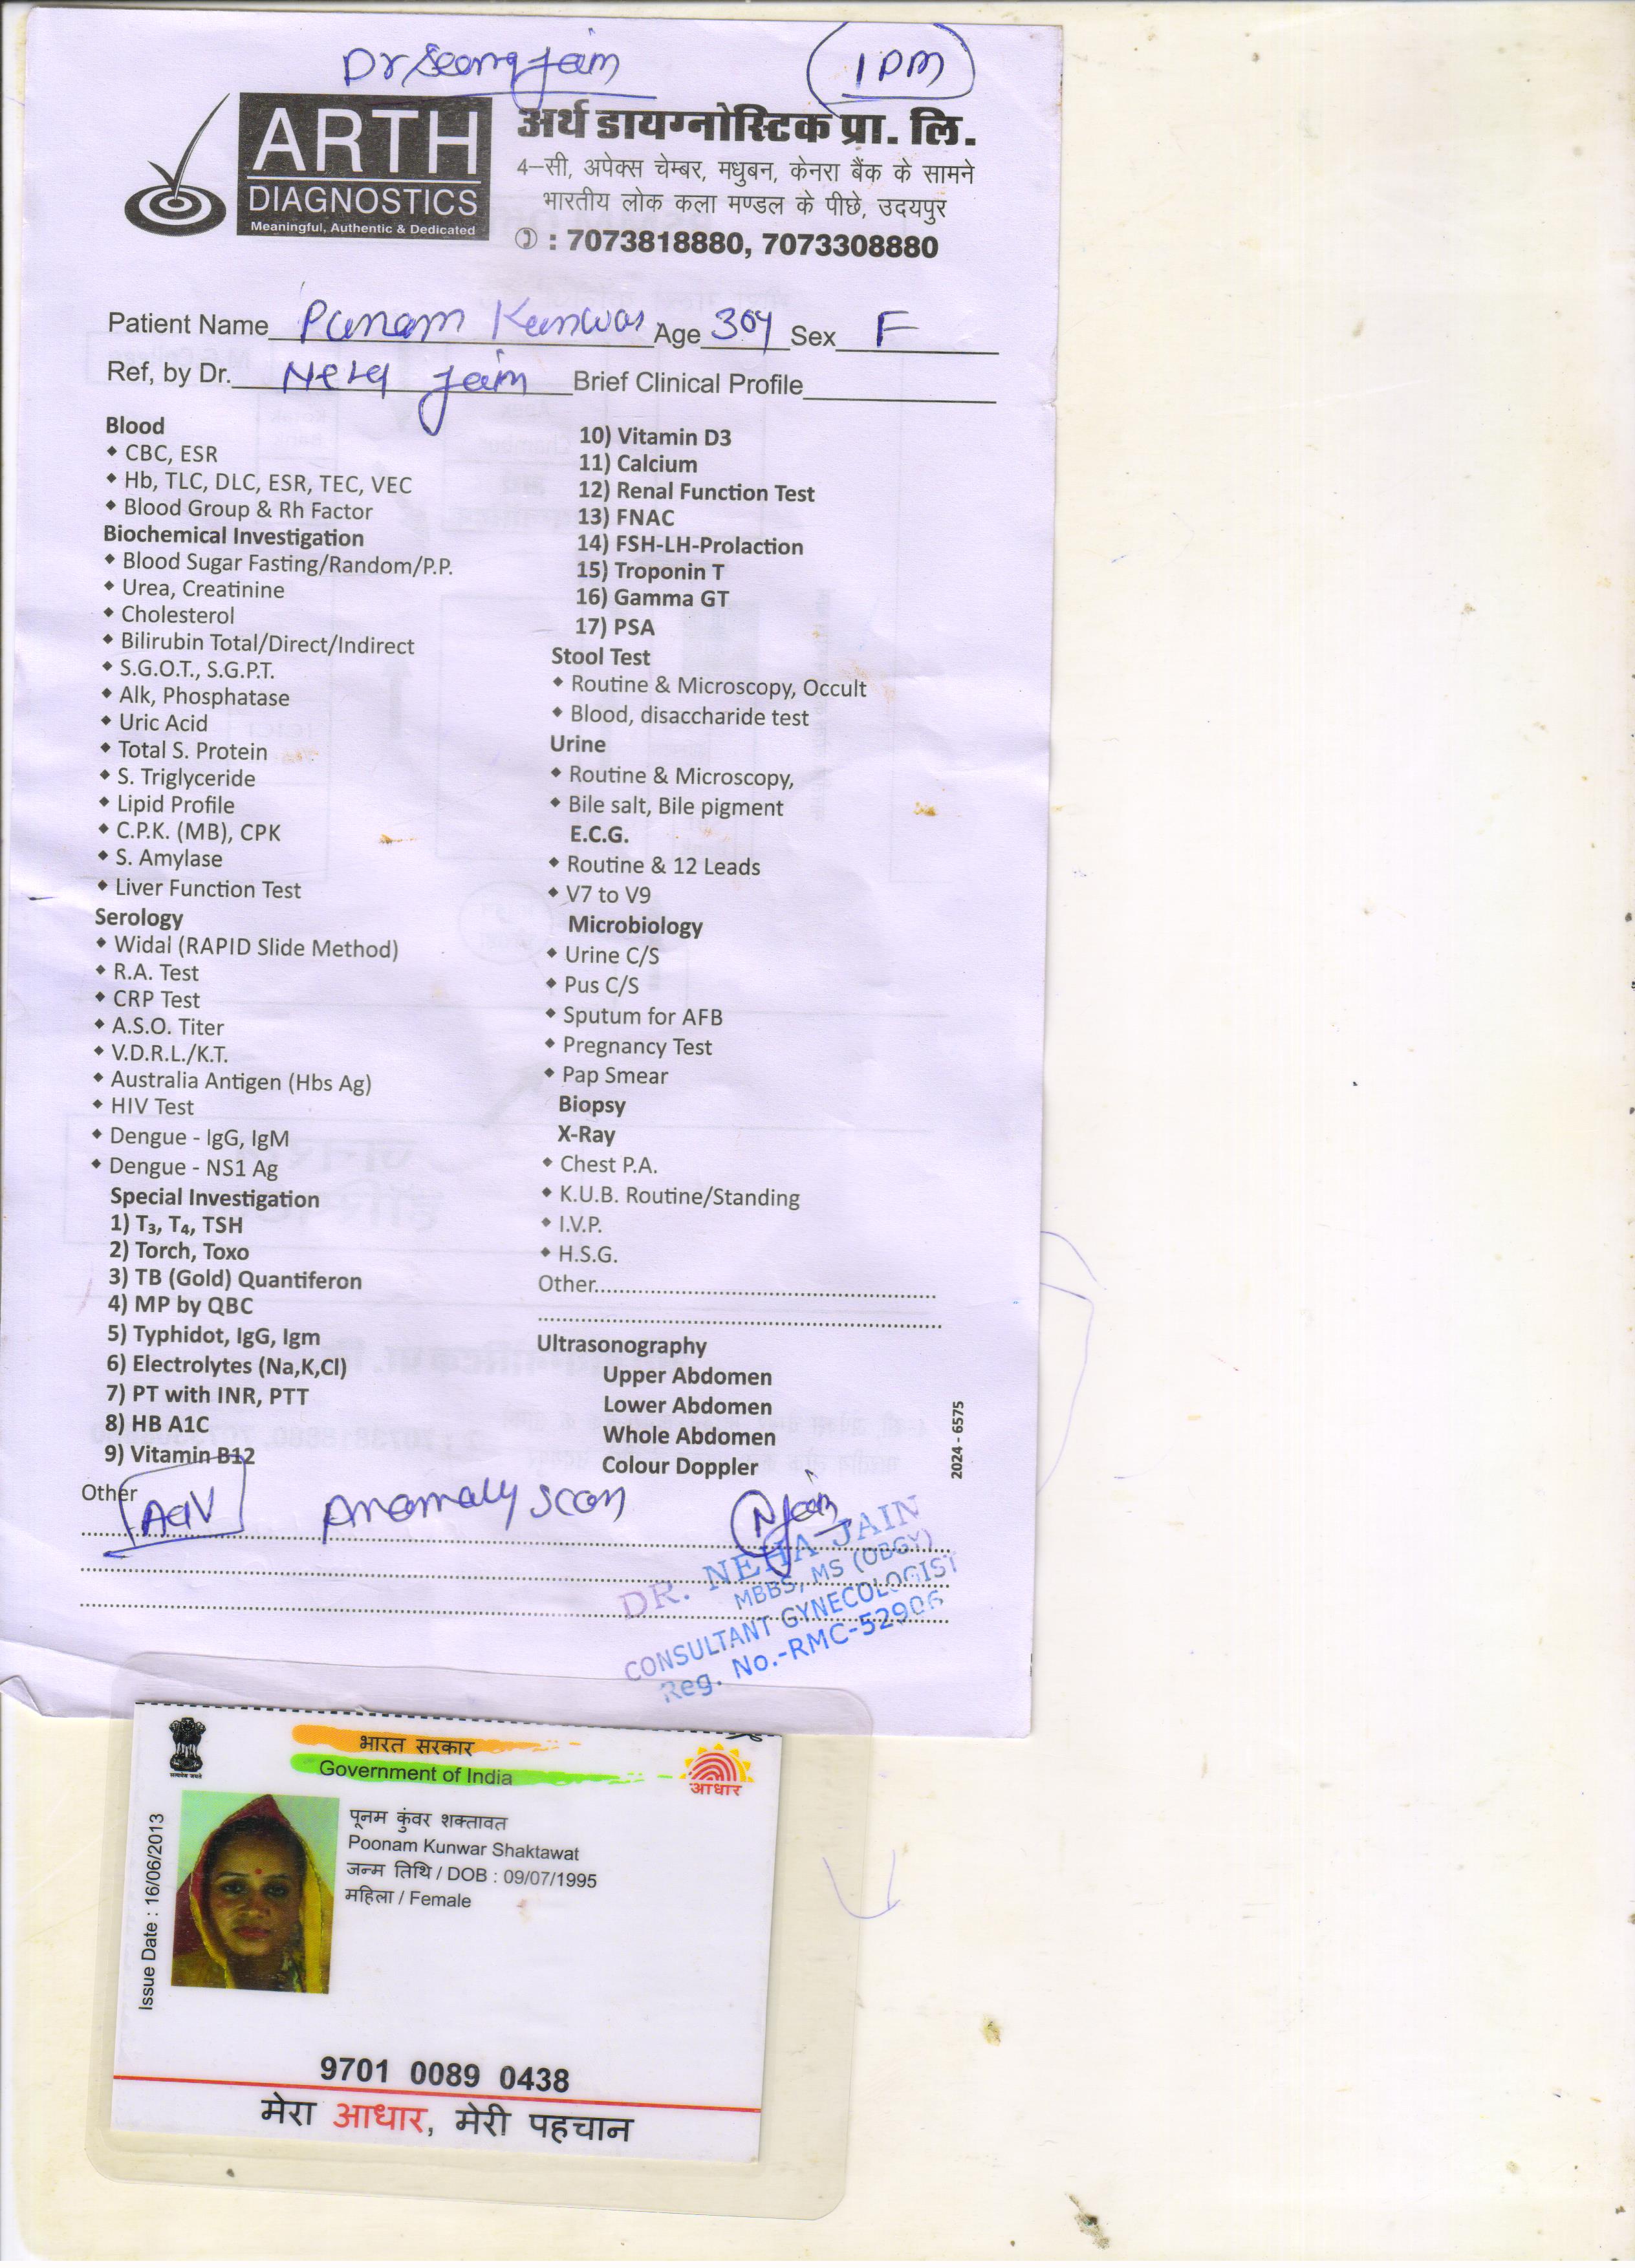 Dr Jain
1 PM
ARTH
DIAGNOSTICS
Meaningful, Authentic & Dedicated
अर्थ डायग्नोस्टिक प्रा. लि.
4–सी, अपेक्स चेम्बर, मधुबन, केनरा बैंक के सामने
भारतीय लोक कला मण्डल के पीछे, उदयपुर
: 7073818880, 7073308880
Patient Name Punam Kunwar Age 30y Sex F
Ref, by Dr. Neha Jain Brief Clinical Profile
Blood
CBC, ESR
Hb, TLC, DLC, ESR, TEC, VEC
Blood Group & Rh Factor
Biochemical Investigation
Blood Sugar Fasting/Random/P.P.
Urea, Creatinine
Cholesterol
Bilirubin Total/Direct/Indirect
S.G.O.T., S.G.P.T.
Alk, Phosphatase
Uric Acid
Total S. Protein
S. Triglyceride
Lipid Profile
C.P.K. (MB), CPK
S. Amylase
Liver Function Test
Serology
Widal (RAPID Slide Method)
R.A. Test
CRP Test
A.S.O. Titer
V.D.R.L./K.T.
Australia Antigen (Hbs Ag)
HIV Test
Dengue - IgG, IgM
Dengue - NS1 Ag
Special Investigation
1) T₃, T₄, TSH
2) Torch, Toxo
3) TB (Gold) Quantiferon
4) MP by QBC
5) Typhidot, IgG, Igm
6) Electrolytes (Na,K,Cl)
7) PT with INR, PTT
8) HB A1C
9) Vitamin B12
10) Vitamin D3
11) Calcium
12) Renal Function Test
13) FNAC
14) FSH-LH-Prolaction
15) Troponin T
16) Gamma GT
17) PSA
Stool Test
Routine & Microscopy, Occult
Blood, disaccharide test
Urine
Routine & Microscopy,
Bile salt, Bile pigment
E.C.G.
Routine & 12 Leads
V7 to V9
Microbiology
Urine C/S
Pus C/S
Sputum for AFB
Pregnancy Test
Pap Smear
Biopsy
X-Ray
Chest P.A.
K.U.B. Routine/Standing
I.V.P.
H.S.G.
Other
Ultrasonography
Upper Abdomen
Lower Abdomen
Whole Abdomen
Colour Doppler
2024 - 6575
Other
Anomaly scan
NJain
DR. NEHA JAIN
MBBS, MS (OBGY)
CONSULTANT GYNECOLOGIST
Reg. No.-RMC-52906
भारत सरकार
Government of India
आधार
Issue Date : 16/06/2013
पूनम कुंवर शक्तावत
Poonam Kunwar Shaktawat
जन्म तिथि / DOB : 09/07/1995
महिला / Female
9701 0089 0438
मेरा आधार, मेरी पहचान